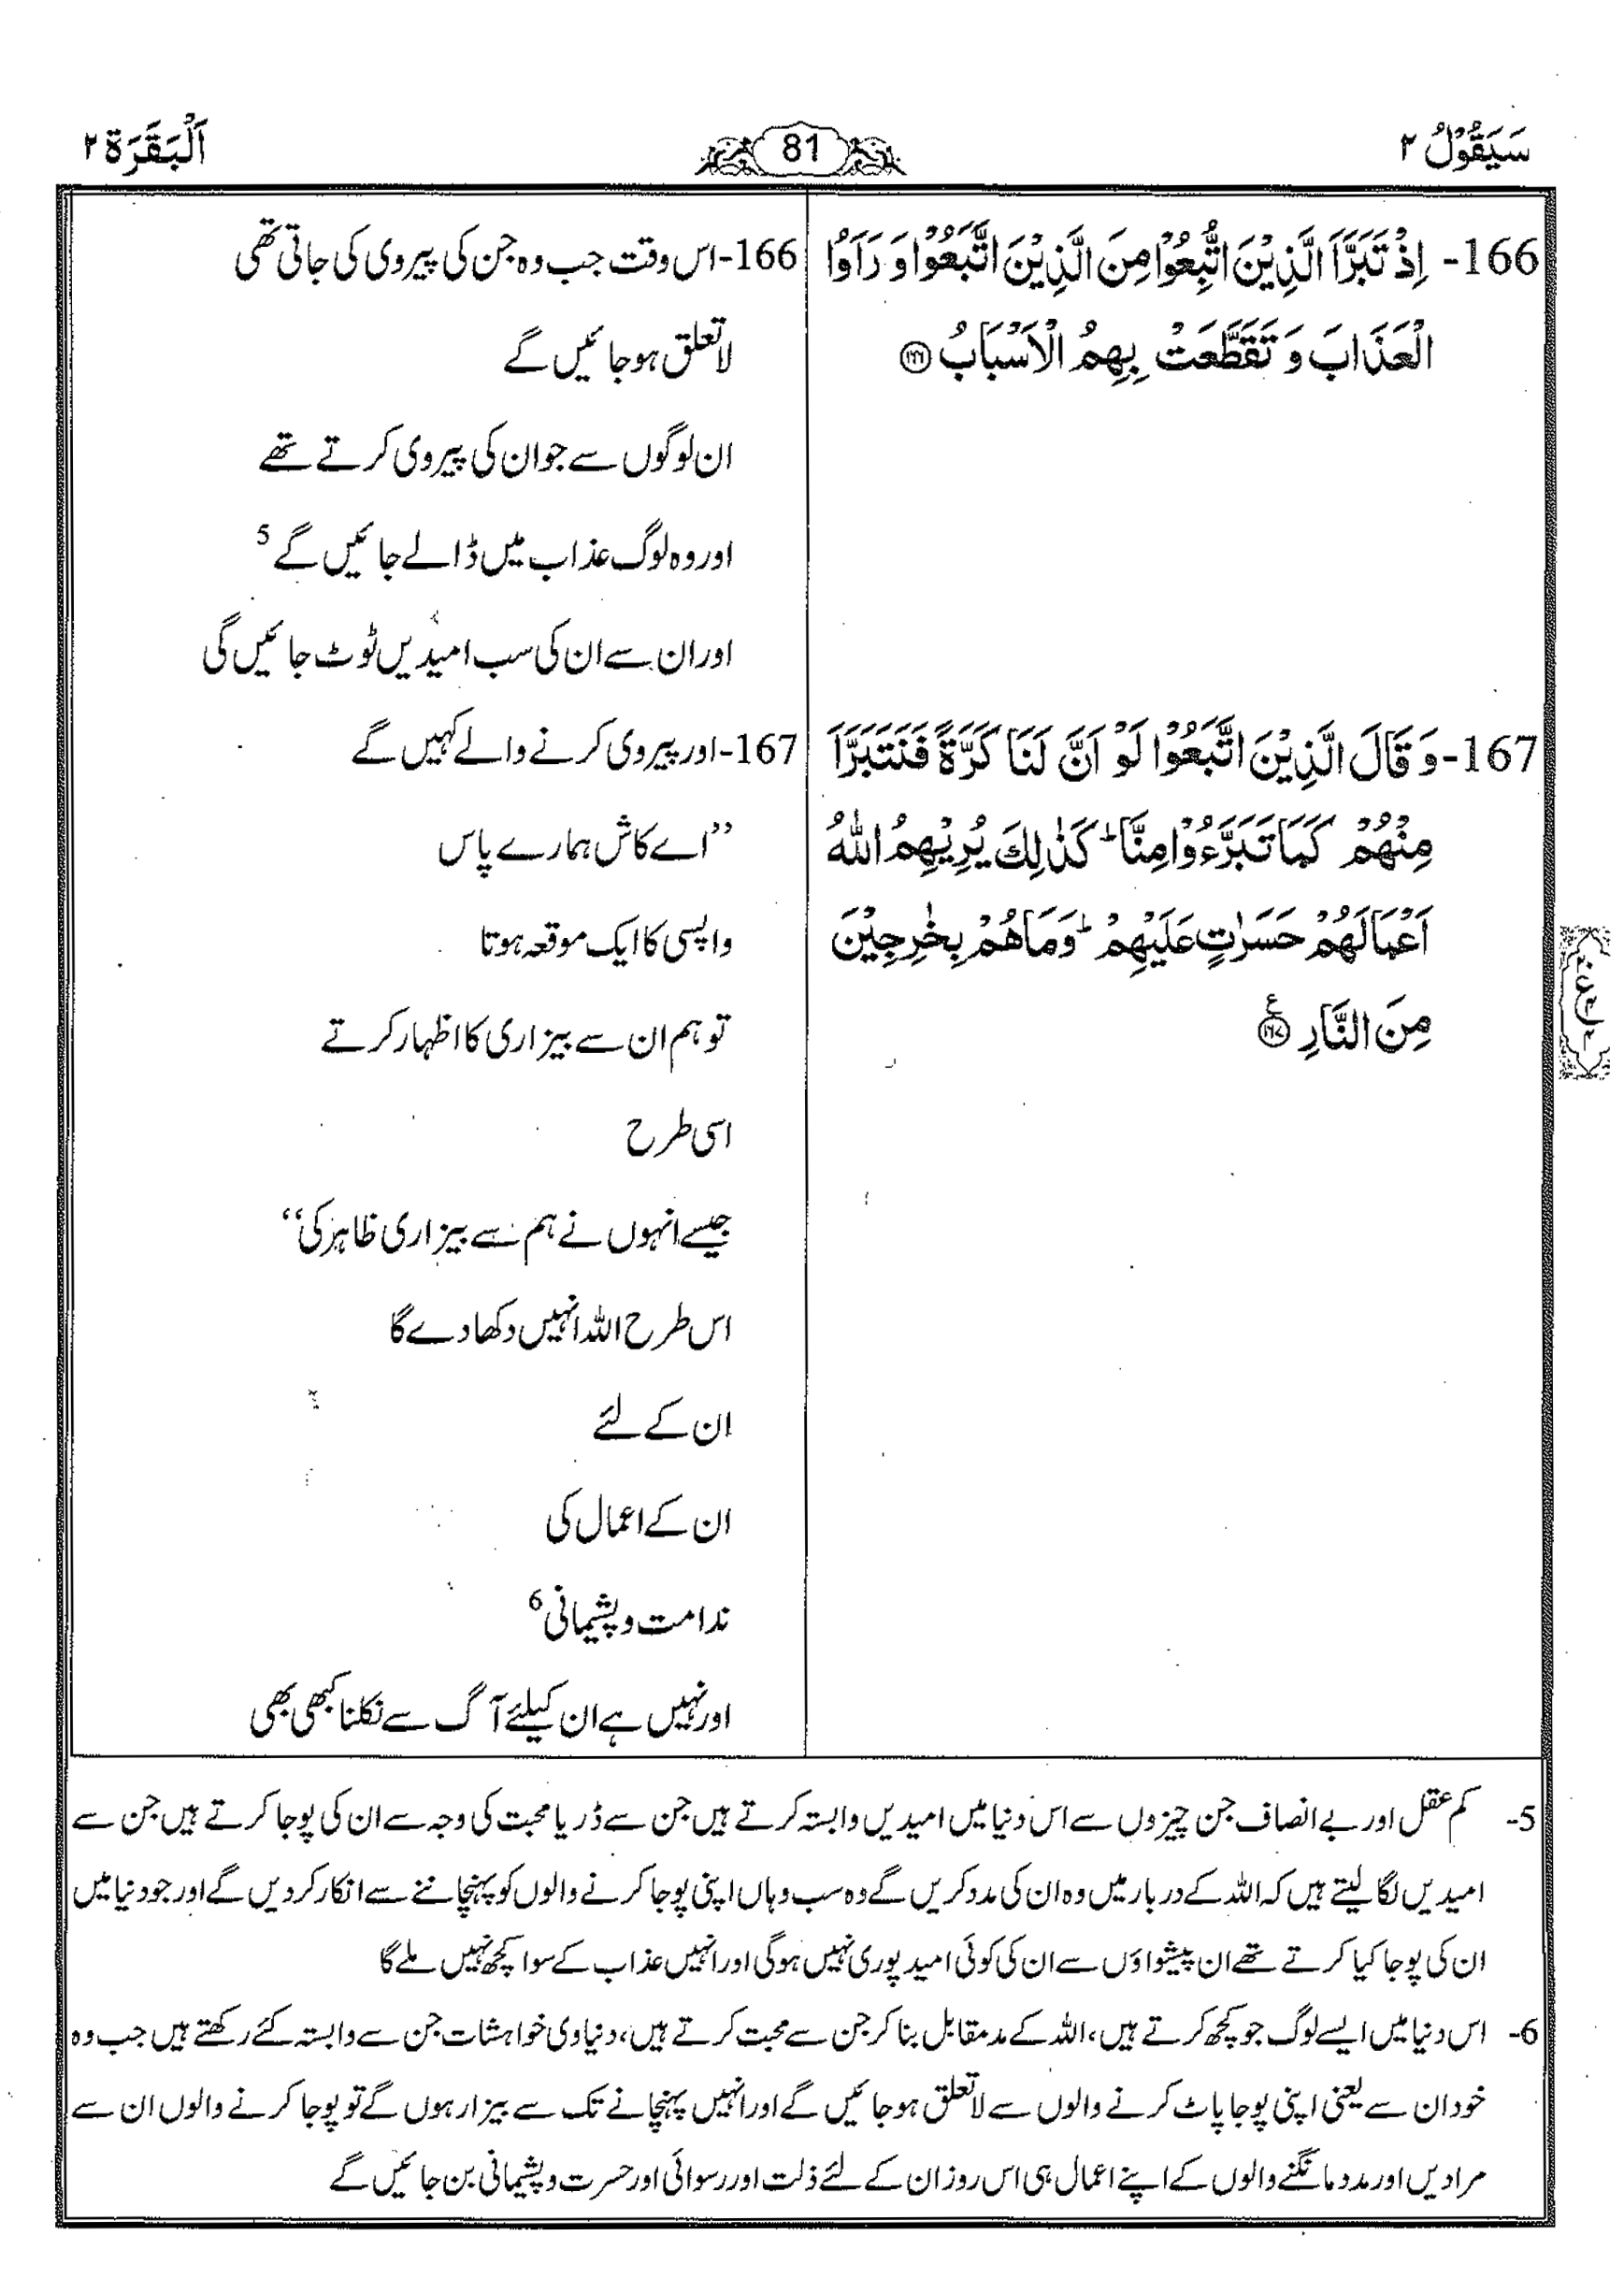 سَيَقُوْلُ ٢
81
اَلْبَقَرَة ٢
166- اِذْ تَبَرَّاَ الَّذِيْنَ اتُّبِعُوْا مِنَ الَّذِيْنَ اتَّبَعُوْا وَ رَاَوُا
الْعَذَابَ وَ تَقَطَّعَتْ بِهِمُ الْاَسْبَابُ ۝١٦٦
167- وَ قَالَ الَّذِيْنَ اتَّبَعُوْا لَوْ اَنَّ لَنَا كَرَّةً فَنَتَبَرَّاَ
مِنْهُمْ كَمَا تَبَرَّءُوْا مِنَّا ؕ كَذٰلِكَ يُرِيْهِمُ اللّٰهُ
اَعْمَالَهُمْ حَسَرٰتٍ عَلَيْهِمْ ؕ وَمَا هُمْ بِخٰرِجِيْنَ
مِنَ النَّارِ ۝١٦٧ ع
166- اس وقت جب وہ جن کی پیروی کی جاتی تھی
لا تعلق ہو جائیں گے
ان لوگوں سے جو ان کی پیروی کرتے تھے
اور وہ لوگ عذاب میں ڈالے جائیں گے 5
اور ان سے ان کی سب امیدیں ٹوٹ جائیں گی
167- اور پیروی کرنے والے کہیں گے
”اے کاش ہمارے پاس
واپسی کا ایک موقعہ ہوتا
تو ہم ان سے بیزاری کا اظہار کرتے
اسی طرح
جیسے انہوں نے ہم سے بیزاری ظاہر کی“
اس طرح اللہ انہیں دکھا دے گا
ان کے لئے
ان کے اعمال کی
ندامت و پشیمانی 6
اور نہیں ہے ان کیلئے آگ سے نکلنا کبھی بھی
5- کم عقل اور بے انصاف جن چیزوں سے اس دنیا میں امیدیں وابستہ کرتے ہیں جن سے ڈر یا محبت کی وجہ سے ان کی پوجا کرتے ہیں جن سے
امیدیں لگا لیتے ہیں کہ اللہ کے دربار میں وہ ان کی مدد کریں گے وہ سب وہاں اپنی پوجا کرنے والوں کو پہنچاننے سے انکار کر دیں گے اور جو دنیا میں
ان کی پوجا کیا کرتے تھے ان پیشواؤں سے ان کی کوئی امید پوری نہیں ہوگی اور انہیں عذاب کے سوا کچھ نہیں ملے گا
6- اس دنیا میں ایسے لوگ جو کچھ کرتے ہیں، اللہ کے مد مقابل بنا کر جن سے محبت کرتے ہیں، دنیاوی خواہشات جن سے وابستہ کئے رکھتے ہیں جب وہ
خود ان سے یعنی اپنی پوجا پاٹ کرنے والوں سے لا تعلق ہو جائیں گے اور انہیں پہنچانے تک سے بیزار ہوں گے تو پوجا کرنے والوں ان سے
مرادیں اور مدد مانگنے والوں کے اپنے اعمال ہی اس روز ان کے لئے ذلت اور رسوائی اور حسرت و پشیمانی بن جائیں گے